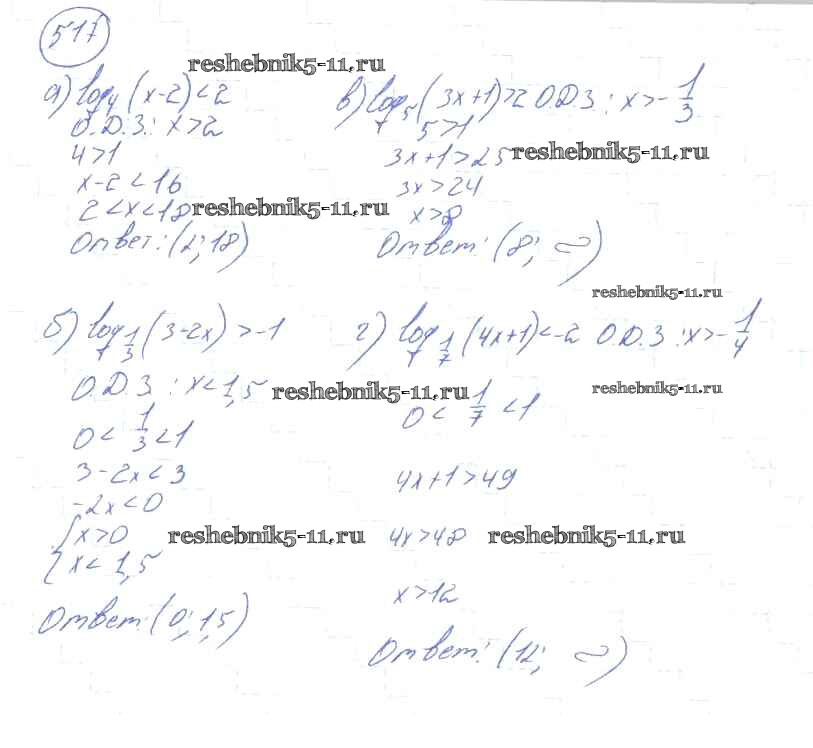 517
reshebnik5-11.ru
а) log₄(x-2)<2
О.Д.З.: x>2
4>1
x-2<16
2<x<18
reshebnik5-11.ru
Ответ: (2; 18)
в) log₅(3x+1)>2 О.Д.З: x>-1/3
5>1
3x+1>25
reshebnik5-11.ru
3x>24
x>8
Ответ: (8; ∞)
reshebnik5-11.ru
б) log_1/3(3-2x)>-1
О.Д.З: x<1,5
reshebnik5-11.ru
0<1/3<1
3-2x<3
-2x<0
{x>0
{x<1,5
reshebnik5-11.ru
Ответ: (0; 1,5)
г) log_1/7(4x+1)<-2 О.Д.З: x>-1/4
reshebnik5-11.ru
0<1/7<1
4x+1>49
4x>48
reshebnik5-11.ru
x>12
Ответ: (12; ∞)